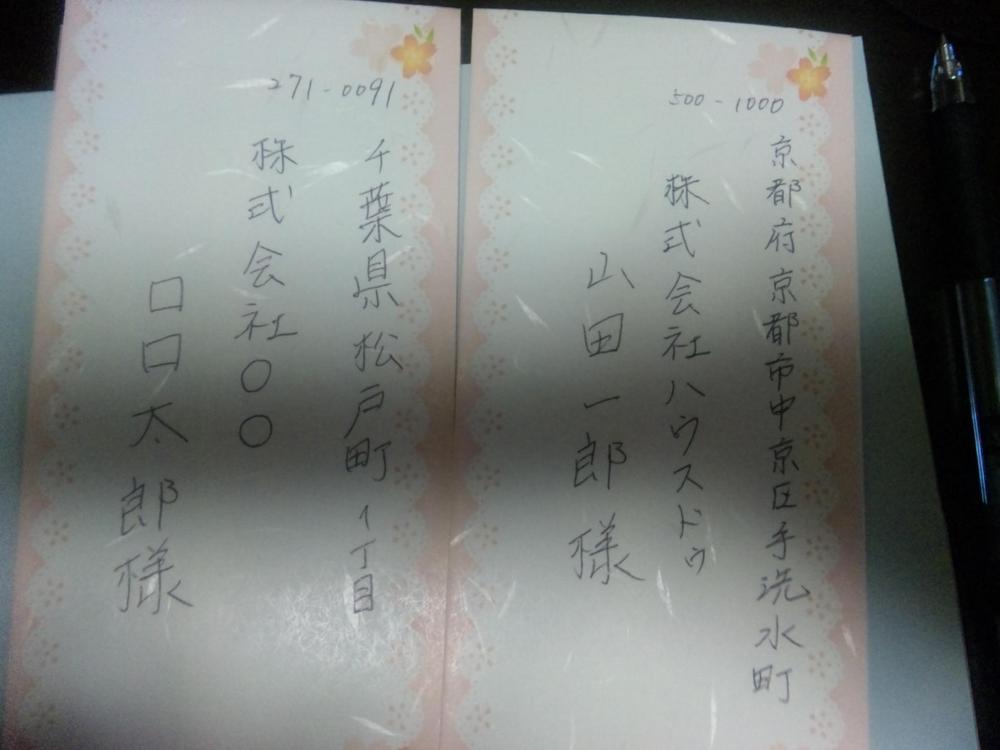 500-1000
京都府京都市中京区手洗水町
株式会社ハウスドゥ
山田一郎様
271-0091
千葉県松戸町1丁目
株式会社〇〇
口口太郎様